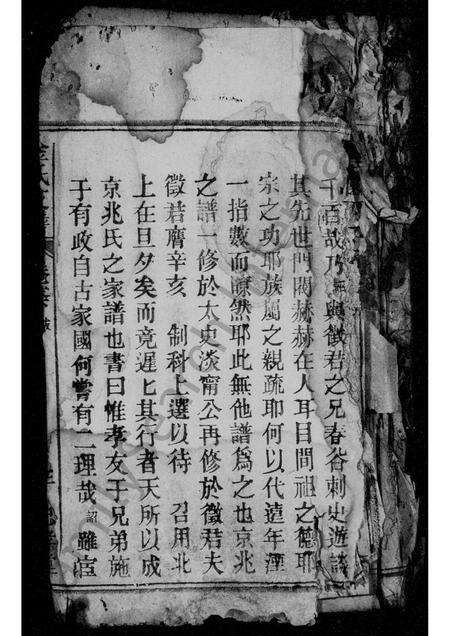 十百故乃無與徵君之兄春谷刺史遊談
其先世門閥赫赫在人耳目間祖之德耶
宗之功耶族屬之親疏耶何以代遠年湮
一指數而瞭然耶此無他譜為之也京兆
之譜一修於太史淡甯公再修於徵君夫
徵君膺辛亥 制科上選以待 召用北
上在旦夕矣而竟遲匕其行者天所以成
京兆氏之家譜也書曰惟孝友于兄弟施
于有政自古家國何嘗有二理哉 詔雖